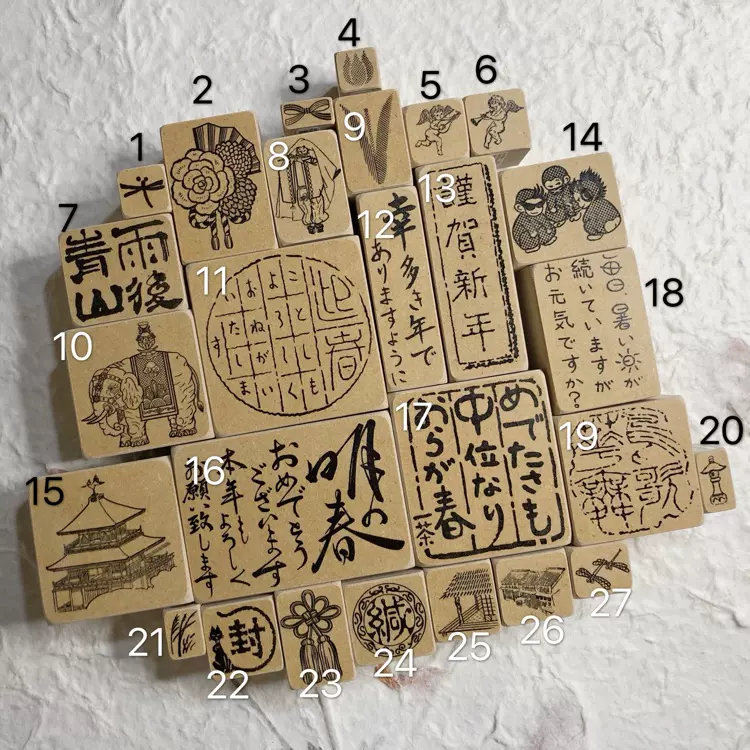 4
5
6
3
2
9
1
8
14
13
謹賀新年
7
雨後
青山
12
幸多き年で
ありますように
11
迎春
ことしも
よろしく
おねがい
いたします
18
毎日暑い
続いていますが
お元気ですか?
10
17
めでたさも
中位なり
おらが春
一茶
16
明の春
おめでとう
ございます
本年もよろしく
願い致します
19
20
15
21
22
封
23
24
緘
25
26
27